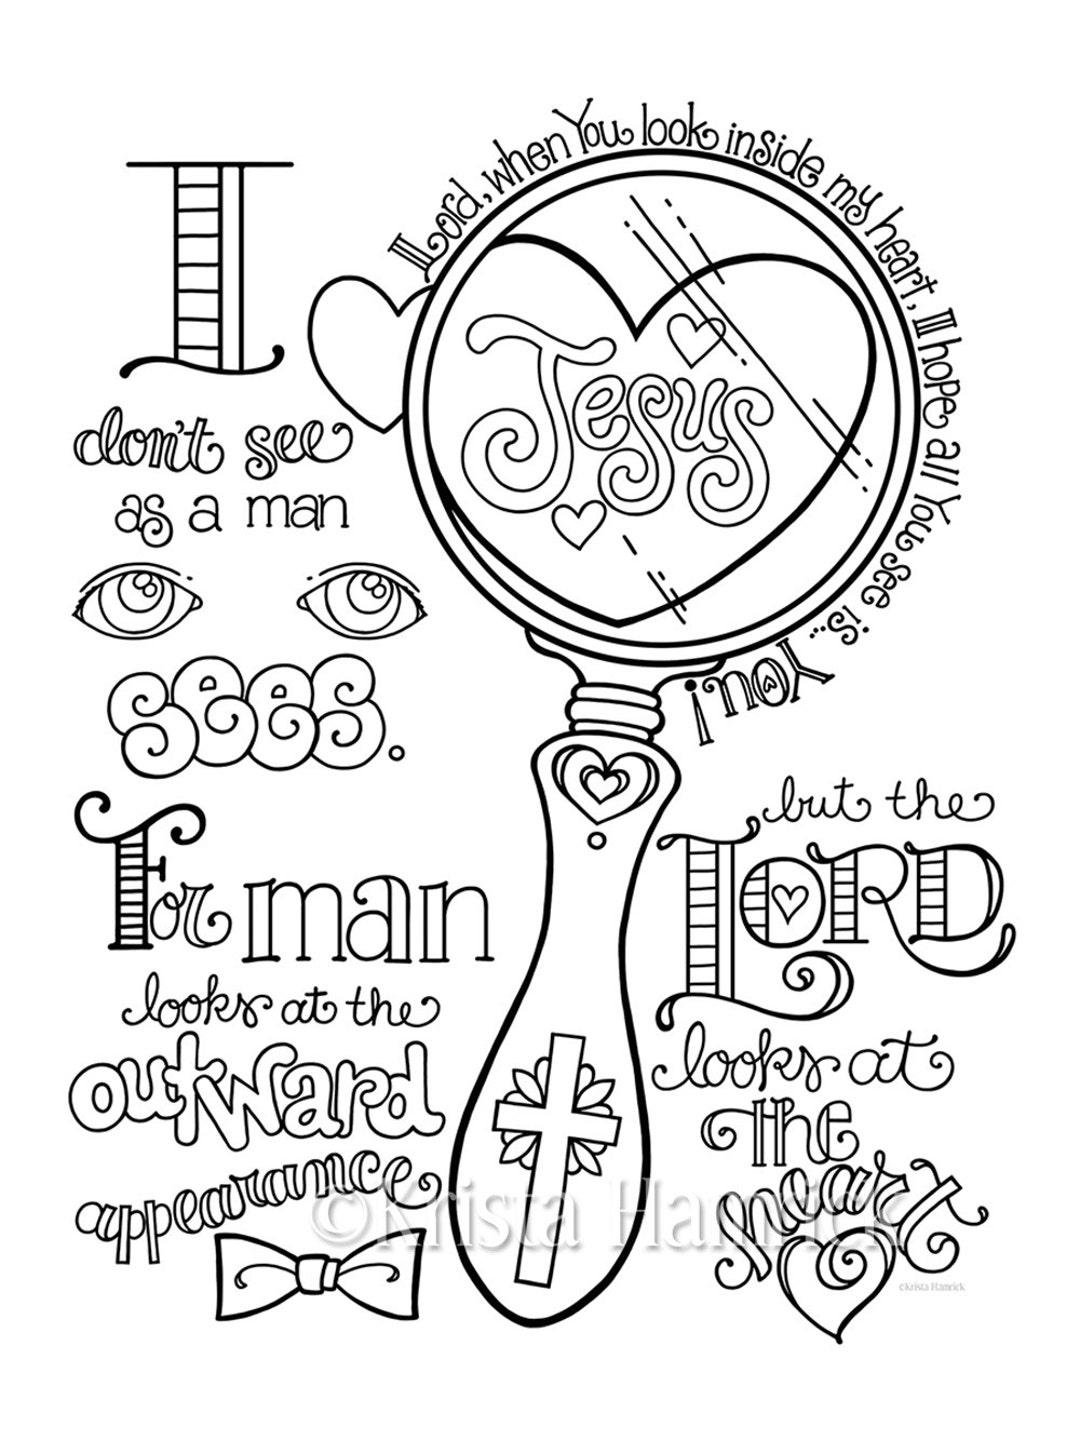 I
don't see
as a man
sees.
For man
looks at the
outward
appearance
Lord, when You look inside my heart, I hope all You see is...
You!
Jesus
but the
LORD
looks at
THE
heart
©Krista Hamrick
©Krista Hamrick